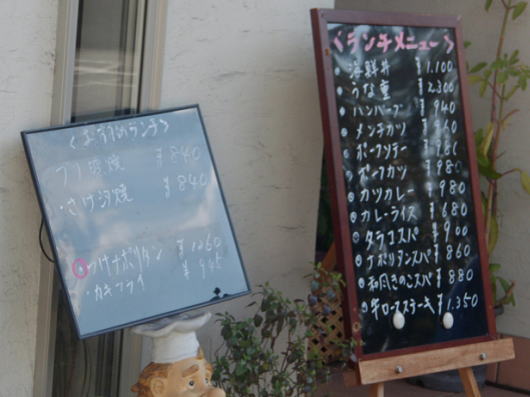 <おすすめランチ>
ブリ照焼 ¥840
・さけ汐焼 ¥840
つけナポリタン ¥1260
・カキフライ ¥945
<ランチメニュー>
海鮮丼 ¥1,100
うな重 ¥2,300
ハンバーグ ¥940
メンチカツ
ポークソテー
ポークカツ ¥980
カツカレー ¥980
カレーライス ¥680
タラコスパ ¥900
ナポリタンスパ ¥860
和風きのこスパ ¥880
牛ロースステーキ ¥1,350